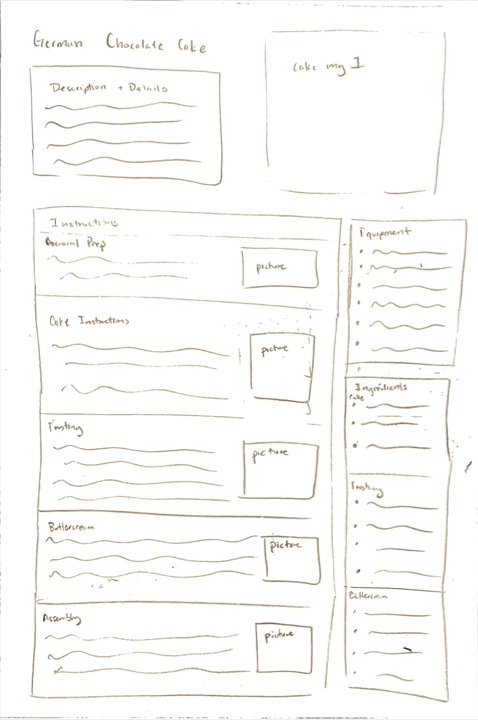 German Chocolate Cake
Cake img 1
Description + Details
Instructions
General Prep
picture
Cake Instructions
picture
Frosting
picture
Buttercream
picture
Assembly
picture
Equipment
Ingredients
Cake
Frosting
Buttercream